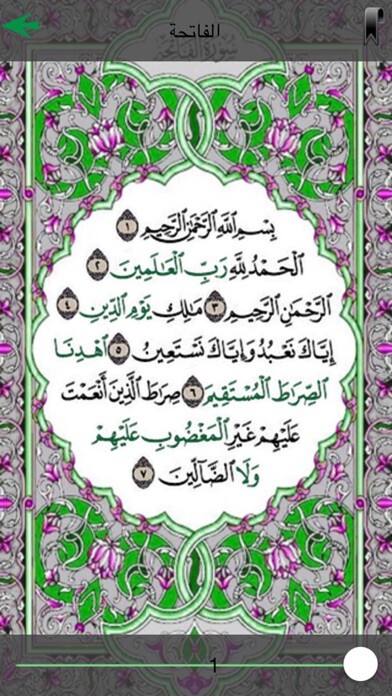 الفاتحة
سورة الفاتحة
بِسْمِ ٱللَّهِ ٱلرَّحْمَٰنِ ٱلرَّحِيمِ ١
ٱلْحَمْدُ لِلَّهِ رَبِّ ٱلْعَٰلَمِينَ ٢
ٱلرَّحْمَٰنِ ٱلرَّحِيمِ ٣ مَٰلِكِ يَوْمِ ٱلدِّينِ ٤
إِيَّاكَ نَعْبُدُ وَإِيَّاكَ نَسْتَعِينُ ٥ ٱهْدِنَا
ٱلصِّرَٰطَ ٱلْمُسْتَقِيمَ ٦ صِرَٰطَ ٱلَّذِينَ أَنْعَمْتَ
عَلَيْهِمْ غَيْرِ ٱلْمَغْضُوبِ عَلَيْهِمْ
وَلَا ٱلضَّآلِّينَ ٧
1